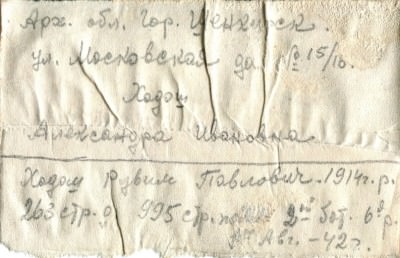 Арх. обл. Гор. Шенкурск.
ул. Московская до № 15/16.
Ходош
Александра Ивановна
Ходош Рувим Павлович. 1914 г. р.
263 стр. д 995 стр. полк 2ой бат. 6я р.
Авг. – 42 г.